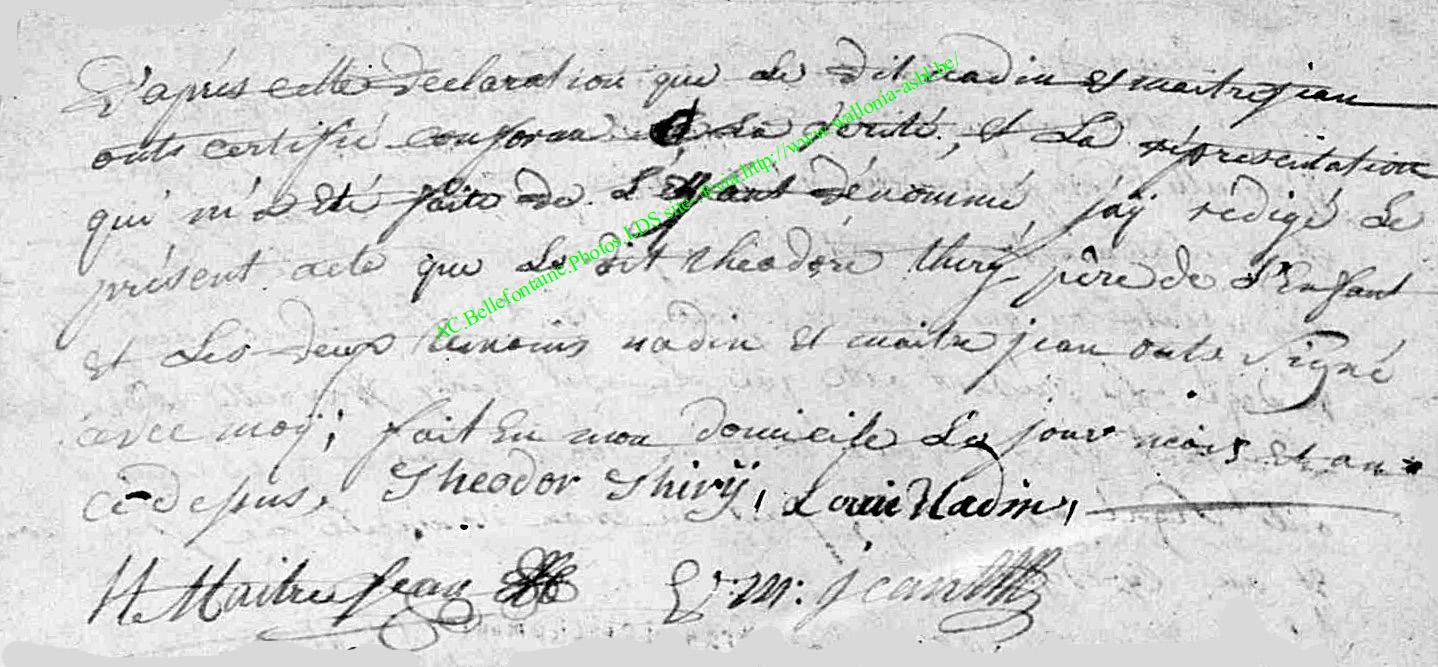 D'après cette declaration que le dit nadin et maitrejean
onts certifié conforme a La vérité, et La répresentation
qui m'a Eté faite de L'Enfant dénommé, j'aÿ rédigé Le
présent acte que Le dit theodore thirÿ père de L'Enfant
et Les deux temoins nadin et maitre jean onts Signé
avec moÿ; fait En mon domicile Les jour mois et an
ci-depus, Theodor Thirÿ, Louis Nadin,
H Maitre jean
m: jean
AC.Bellefontaine.Photos.LDS http://www.wallonia-asbl.be/